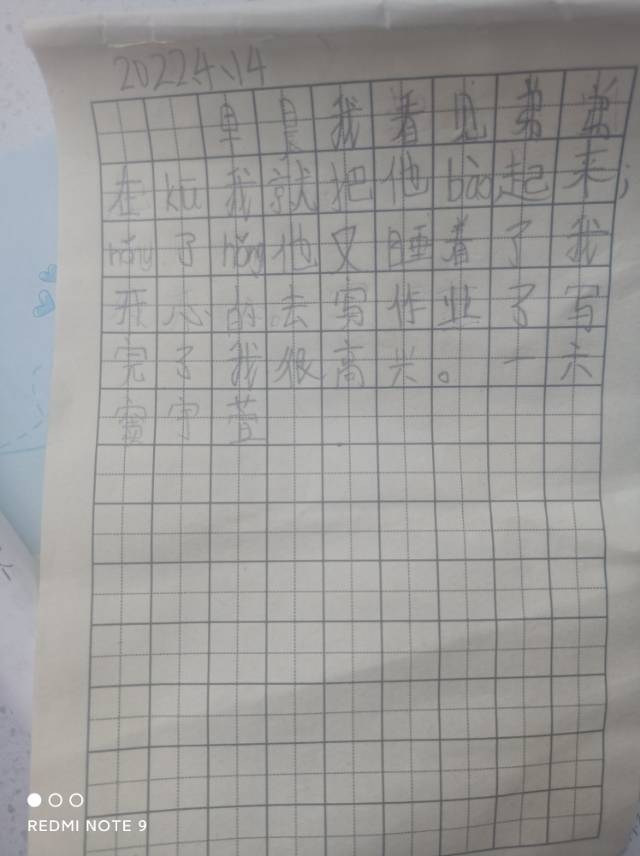 2022.4、14
早晨我看见弟弟
在kū我就把他bào起来，
hǒng了hǒng他又睡着了我
开心的去写作业了写
完了我很高兴。一六
窦宇萱
REDMI NOTE 9